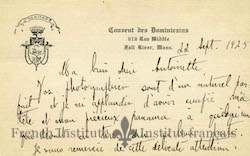 Couvent des Dominicains
818 Rue Middle
Fall River, Mass.
22 Sept. 1925
Ma bien chère Antoinette
Vos photographies sont d'un naturel par
fait et je m'applaudis d'avoir confié ma
tête et mon précieux panama à quelqu'un
French Institute Institut français
Je vous remercie de cette délicate attention